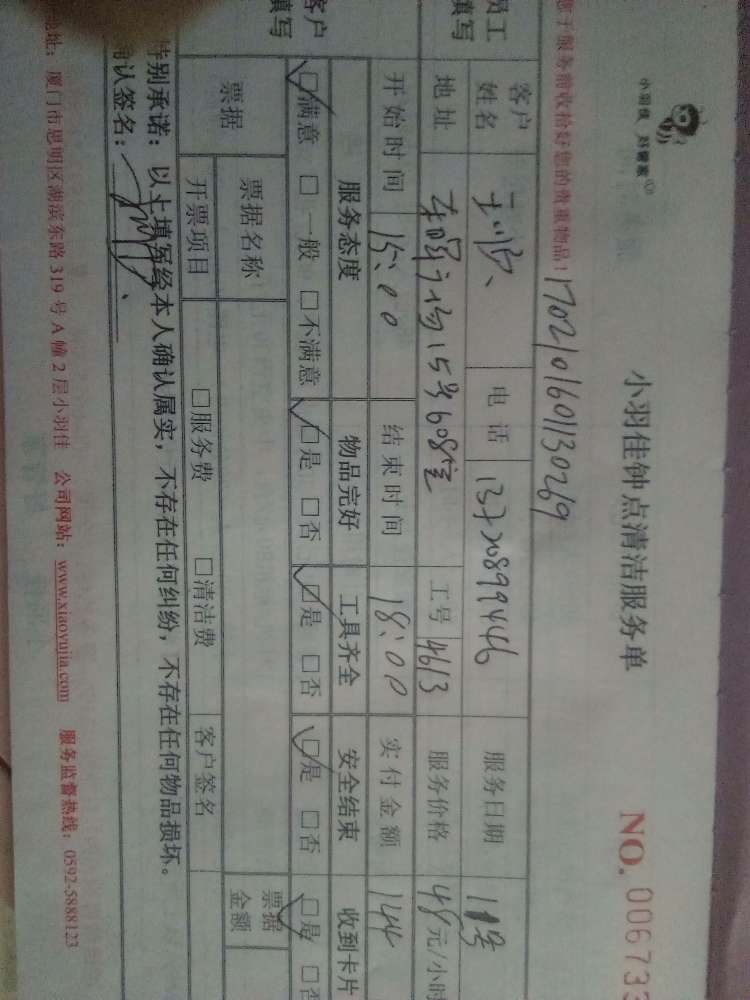 小羽佳 好管家
小羽佳钟点清洁服务单
NO. 006733
您于服务前收拾好您的贵重物品！1702101601130269
员工填写
客户姓名 电话 13720899446 服务日期
地址 15号608室 工号 4613 服务价格 48元/小时
开始时间 15:00 结束时间 18:00 实付金额 144
客户填写
服务态度 物品完好 工具齐全 安全结束 收到卡片
☑满意 □一般 □不满意 ☑是 □否 ☑是 □否 ☑是 □否 ☑是 □否
票据 票据名称 票据金额
开票项目 □服务费 □清洁费 客户签名
特别承诺：以上填写经本人确认属实，不存在任何纠纷，不存在任何物品损坏。
确认签名：
地址：厦门市思明区湖滨东路319号A幢2层小羽佳 公司网站：www.xiaoyujia.com 服务监督热线：0592-5888123